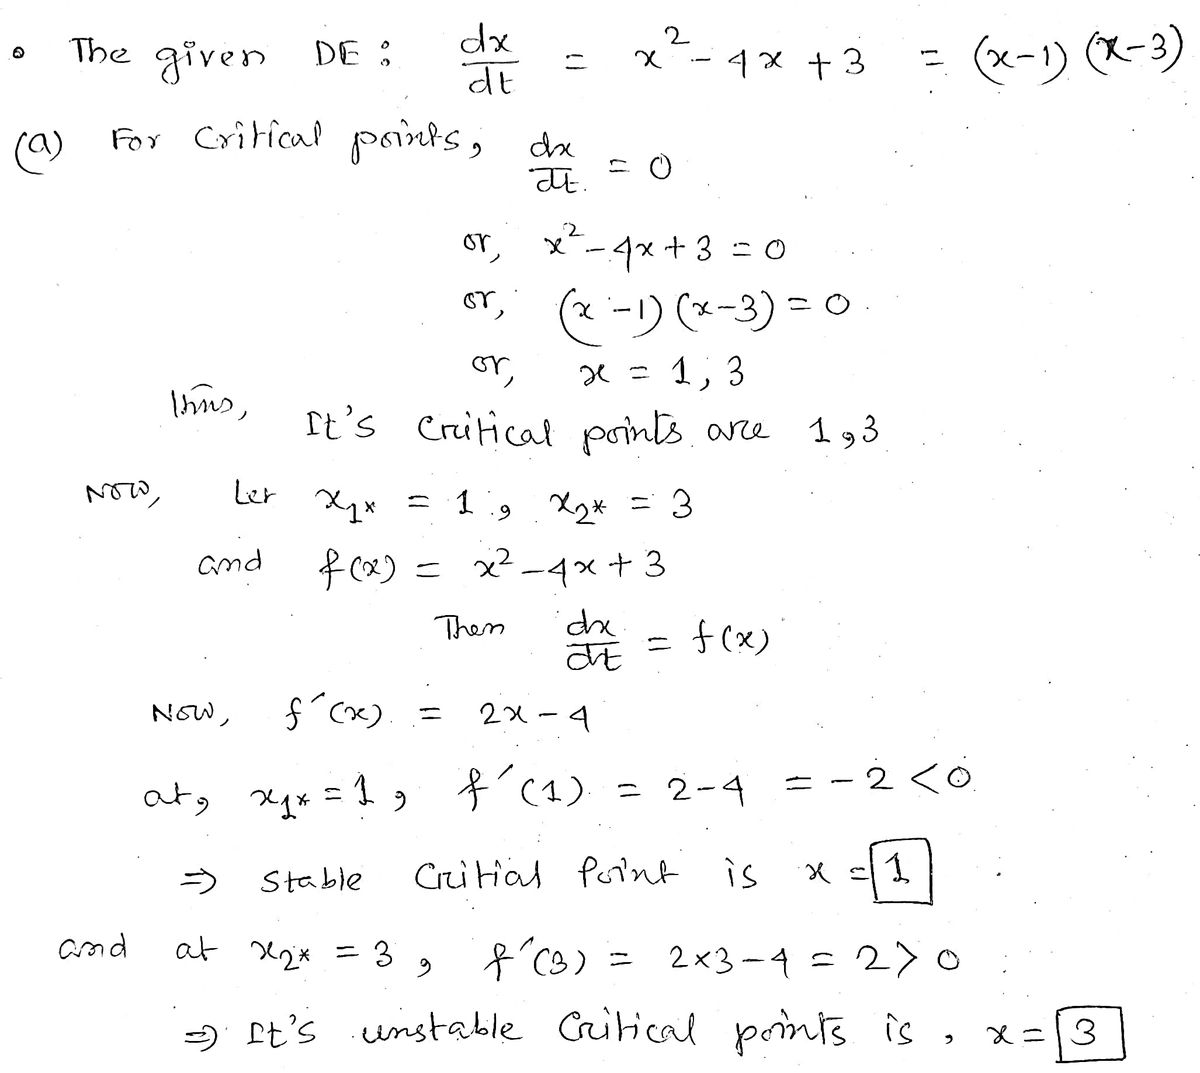 • The given DE : dx/dt = x² - 4x + 3 = (x-1) (x-3)
(a) For Critical points, dx/dt = 0
or, x² - 4x + 3 = 0
or, (x-1) (x-3) = 0
or, x = 1, 3
Thus, It's Critical points are 1, 3
Now, Let x₁* = 1, x₂* = 3
and f(x) = x² - 4x + 3
Then dx/dt = f(x)
Now, f´(x) = 2x - 4
at, x₁* = 1, f´(1) = 2-4 = -2 < 0
⇒ Stable Critial Point is x = 1
and at x₂* = 3, f´(3) = 2×3-4 = 2 > 0
⇒ It's unstable Critical points is, x = 3